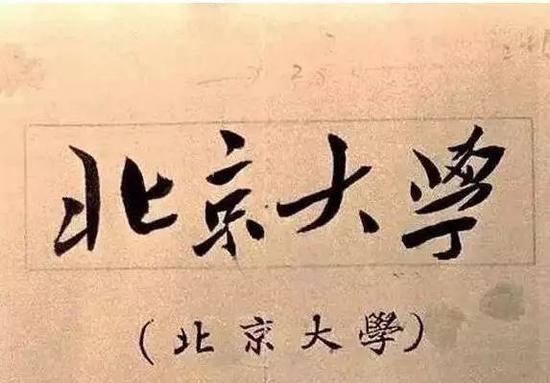 北京大學
(北京大學)